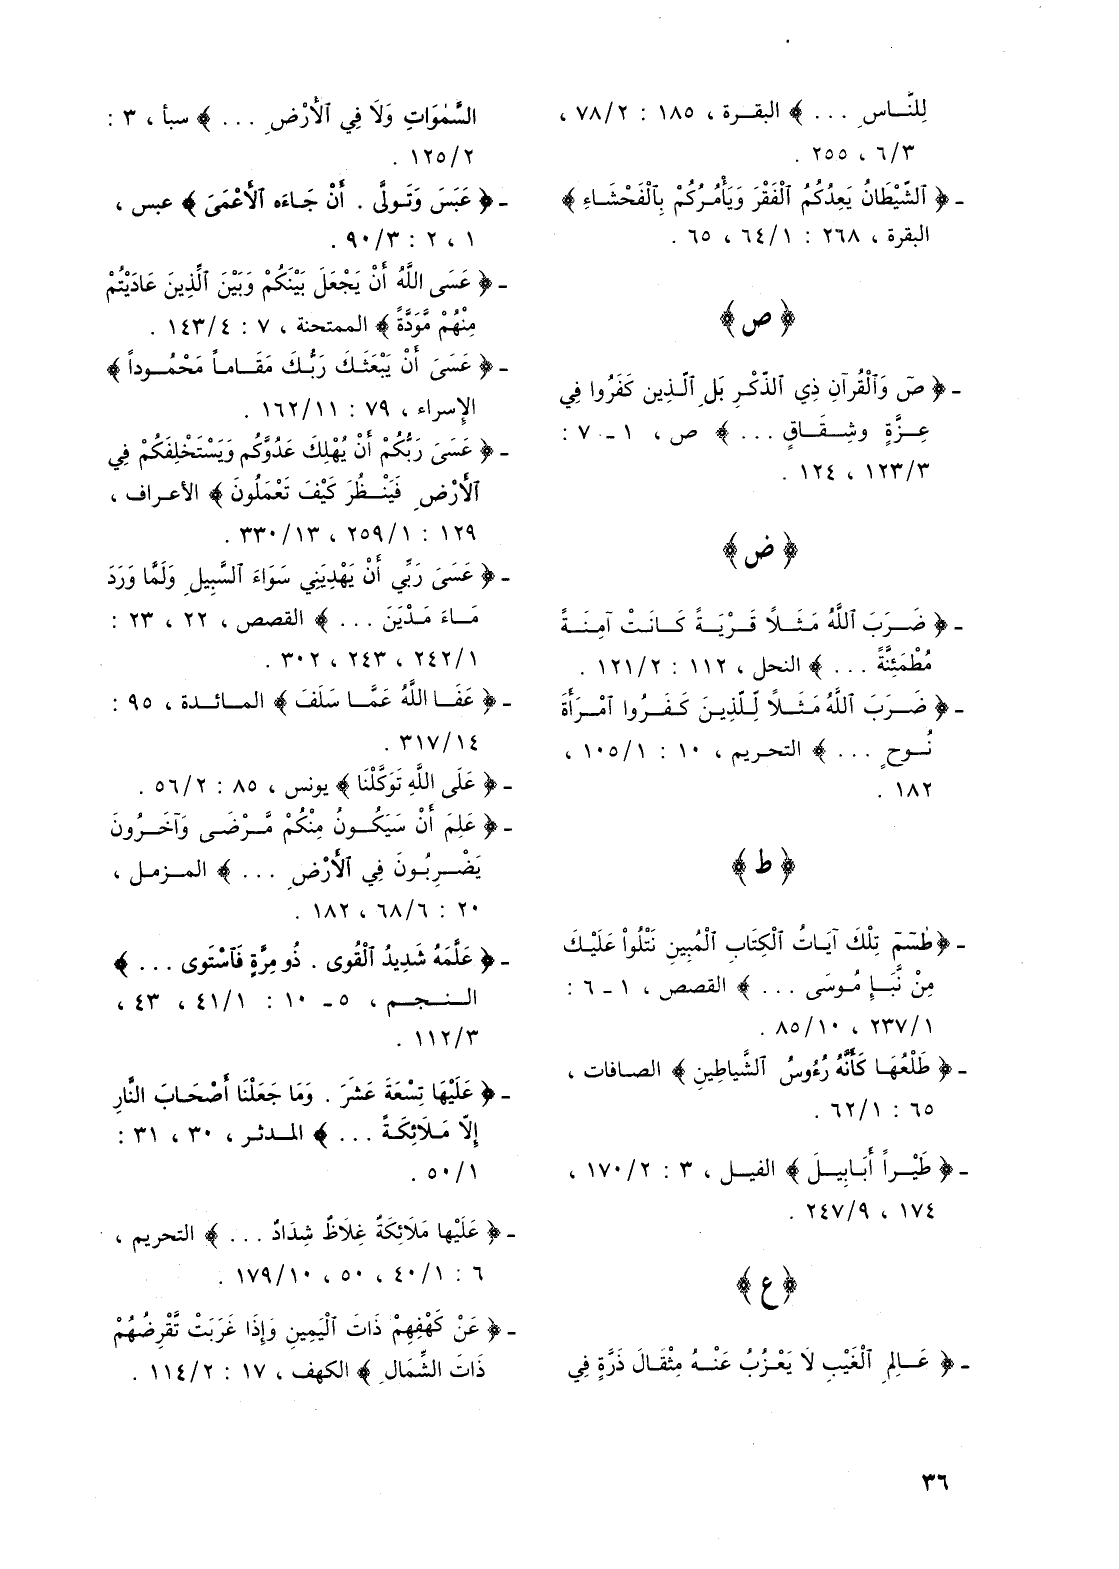 لِلنَّـاسِ ... ﴾ البقـرة ، ١٨٥ : ٧٨/٢ ،
٦/٣ ، ٢٥٥ .
- ﴿ ٱلشَّيْطَانُ يَعِدُكُمُ ٱلْفَقْرَ وَيَأْمُـرُكُمْ بِٱلْفَحْشَـاءِ ﴾
البقرة ، ٢٦٨ : ٦٤/١ ، ٦٥ .
﴿ ص ﴾
- ﴿ صٓ وَٱلْقُرآنِ ذِي ٱلذِّكْرِ بَلِ ٱلَّـذِين كَفَرُوا فِي
عِـزَّةٍ وشِـقَـاقٍ ... ﴾ ص ، ١ - ٧ :
١٢٣/٣ ، ١٢٤ .
﴿ ض ﴾
- ﴿ ضَـرَبَ ٱللَّهُ مَثَـلاً قَـرْيَـةً كَـانَتْ آمِنَـةً
مُطْمَئِنَّةً ... ﴾ النحل ، ١١٢ : ١٢١/٢ .
- ﴿ ضَـرَبَ ٱللَّهُ مَثَـلاً لِّلَّذِيـنَ كَـفَـرُوا ٱمْـرَأَةَ
نُـوحٍ ... ﴾ التحريم ، ١٠ : ١٠٥/١ ،
١٨٢ .
﴿ ط ﴾
- ﴿ طٰسٓمٓ تِلْكَ آيَـاتُ ٱلْكِتَابِ ٱلْمُبِينِ نَتْلُواْ عَلَيْـكَ
مِنْ نَّبَـإِ مُـوسَى ... ﴾ القصص ، ١ - ٦ :
٢٣٧/١ ، ٨٥/١٠ .
- ﴿ طَلْعُهَـا كَأَنَّهُ رُءُوسُ ٱلشَّيَاطِينِ ﴾ الصـافات ،
٦٥ : ٦٢/١ .
- ﴿ طَيْـراً أَبَـابِيـلَ ﴾ الفيـل ، ٣ : ١٧٠/٢ ،
١٧٤ ، ٢٤٧/٩ .
﴿ ع ﴾
- ﴿ عَـالِمِ ٱلْغَيْبِ لَا يَعْـزُبُ عَنْـهُ مِثْقَالَ ذَرَّةٍ فِي
السَّمٰوَاتِ وَلَا فِي ٱلْأَرْضِ ... ﴾ سبأ ، ٣ :
١٢٥/٢ .
- ﴿ عَبَسَ وَتَـولَّى . أَنْ جَـاءَه ٱلْأَعْمَىَ ﴾ عبس ،
١ ، ٢ : ٩٠/٣ .
- ﴿ عَسَى اللَّهُ أَنْ يَجْعَلَ بَيْنَكُمْ وَبَيْنَ ٱلَّذِينَ عَادَيْتُمْ
مِنْهُمْ مَّوَدَّةً ﴾ الممتحنة ، ٧ : ١٤٣/٤ .
- ﴿ عَسَىَ أَنْ يَبْعَثَـكَ رَبُّـكَ مَقَـامـاً مَحْمُـوداً ﴾
الإسراء ، ٧٩ : ١٦٢/١١ .
- ﴿ عَسَىَ رَبُّكُمْ أَنْ يُهْلِكَ عَدُوَّكُم وَيَسْتَخْلِفَكُمْ فِي
ٱلْأَرْضِ فَيَنْـظُرَ كَيْفَ تَعْمَلُونَ ﴾ الأعـراف ،
١٢٩ : ٢٥٩/١ ، ٣٣٠/١٣ .
- ﴿ عَسَىَ رَبِّي أَنْ يَهْدِيَنِي سَوَاءَ ٱلسَّبِيلِ وَلَمَّا وَرَدَ
مَـاءَ مَـدْيَنَ ... ﴾ القصص ، ٢٢ ، ٢٣ :
٢٤٢/١ ، ٢٤٣ ، ٣٠٢ .
- ﴿ عَفَـا اللَّهُ عَمَّـا سَلَفَ ﴾ المـائـدة ، ٩٥ :
٣١٧/١٤ .
- ﴿ عَلَى اللَّهِ تَوَكَّلْنَا ﴾ يونس ، ٨٥ : ٥٦/٢ .
- ﴿ عَلِمَ أَنْ سَيَكُـونُ مِنْكُمْ مَّـرْضَـى وَآخَـرُونَ
يَضْـرِبُـونَ فِي ٱلْأَرْضِ ... ﴾ المـزمـل ،
٢٠ : ٦٨/٦ ، ١٨٢ .
- ﴿ عَلَّمَهُ شَدِيدُ ٱلْقُوى . ذُو مِرَّةٍ فَٱسْتَوى ... ﴾
الـنـجـم ، ٥ - ١٠ : ٤١/١ ، ٤٣ ،
١١٢/٣ .
- ﴿ عَلَيْهَا تِسْعَةَ عَشَرَ . وَمَا جَعَلْنَا أَصْحَابَ النَّارِ
إِلَّا مَـلَائِكَـةً ... ﴾ المـدثـر ، ٣٠ ، ٣١ :
٥٠/١ .
- ﴿ عَلَيْها مَلَائِكَةٌ غِلَاظٌ شِدَادٌ ... ﴾ التحريم ،
٦ : ٤٠/١ ، ٥٠ ، ١٧٩/١٠ .
- ﴿ عَنْ كَهْفِهِمْ ذَاتَ ٱلْيَمِينِ وَإِذَا غَرَبَتْ تَّقْرِضُهُمْ
ذَاتَ الشِّمَالِ ﴾ الكهف ، ١٧ : ١١٤/٢ .
٣٦